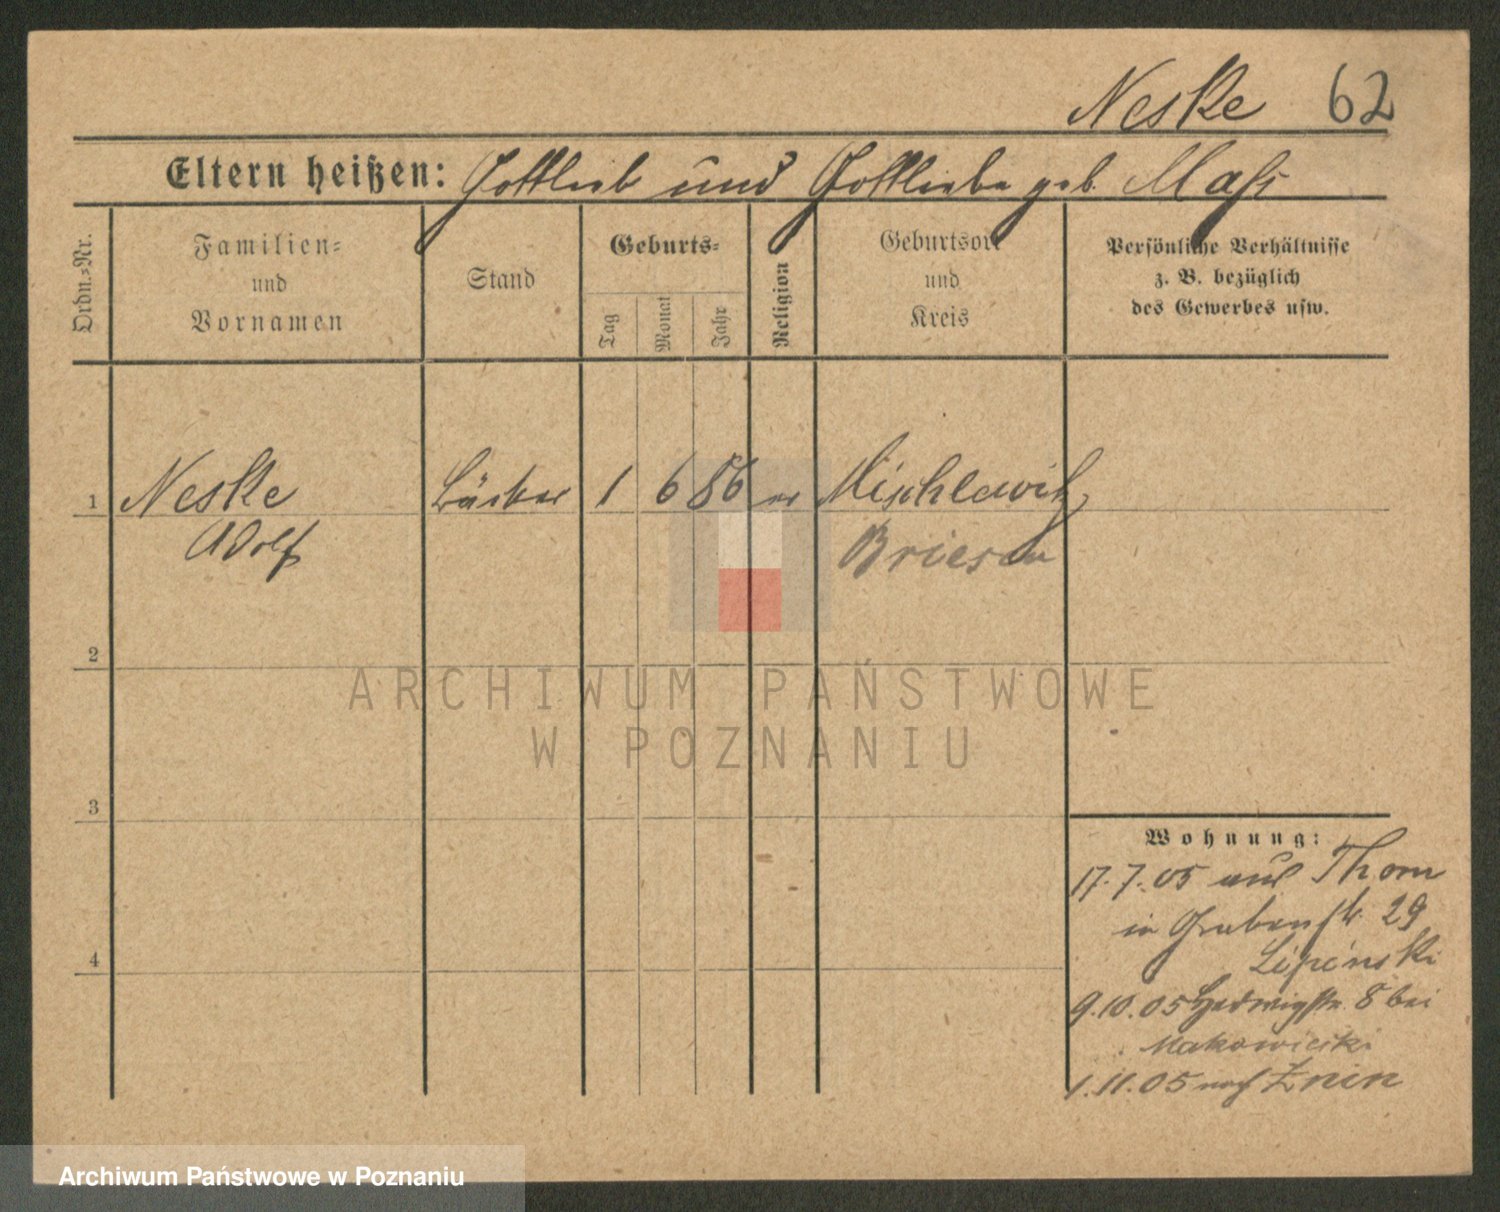 Neske 62
Eltern heißen: Gottlieb und Gottliebe geb. Maß
Ordn.=Nr.
Familien=
und
Vornamen
Stand
Geburts=
Tag
Monat
Jahr
Religion
Geburtsort
und
Kreis
Persönliche Verhältnisse
z. B. bezüglich
des Gewerbes usw.
1 Neske Bäcker 1 6 86 ev Mischlewitz
Adolf Briesen
2
3
4
Wohnung:
17.7.05 aus Thorn
in Grabenstr. 29
Lipinski
9.10.05 Hedwigstr. 8 bei
Makowiecki
1.11.05 nach Znin
ARCHIWUM PAŃSTWOWE
W POZNANIU
Archiwum Państwowe w Poznaniu